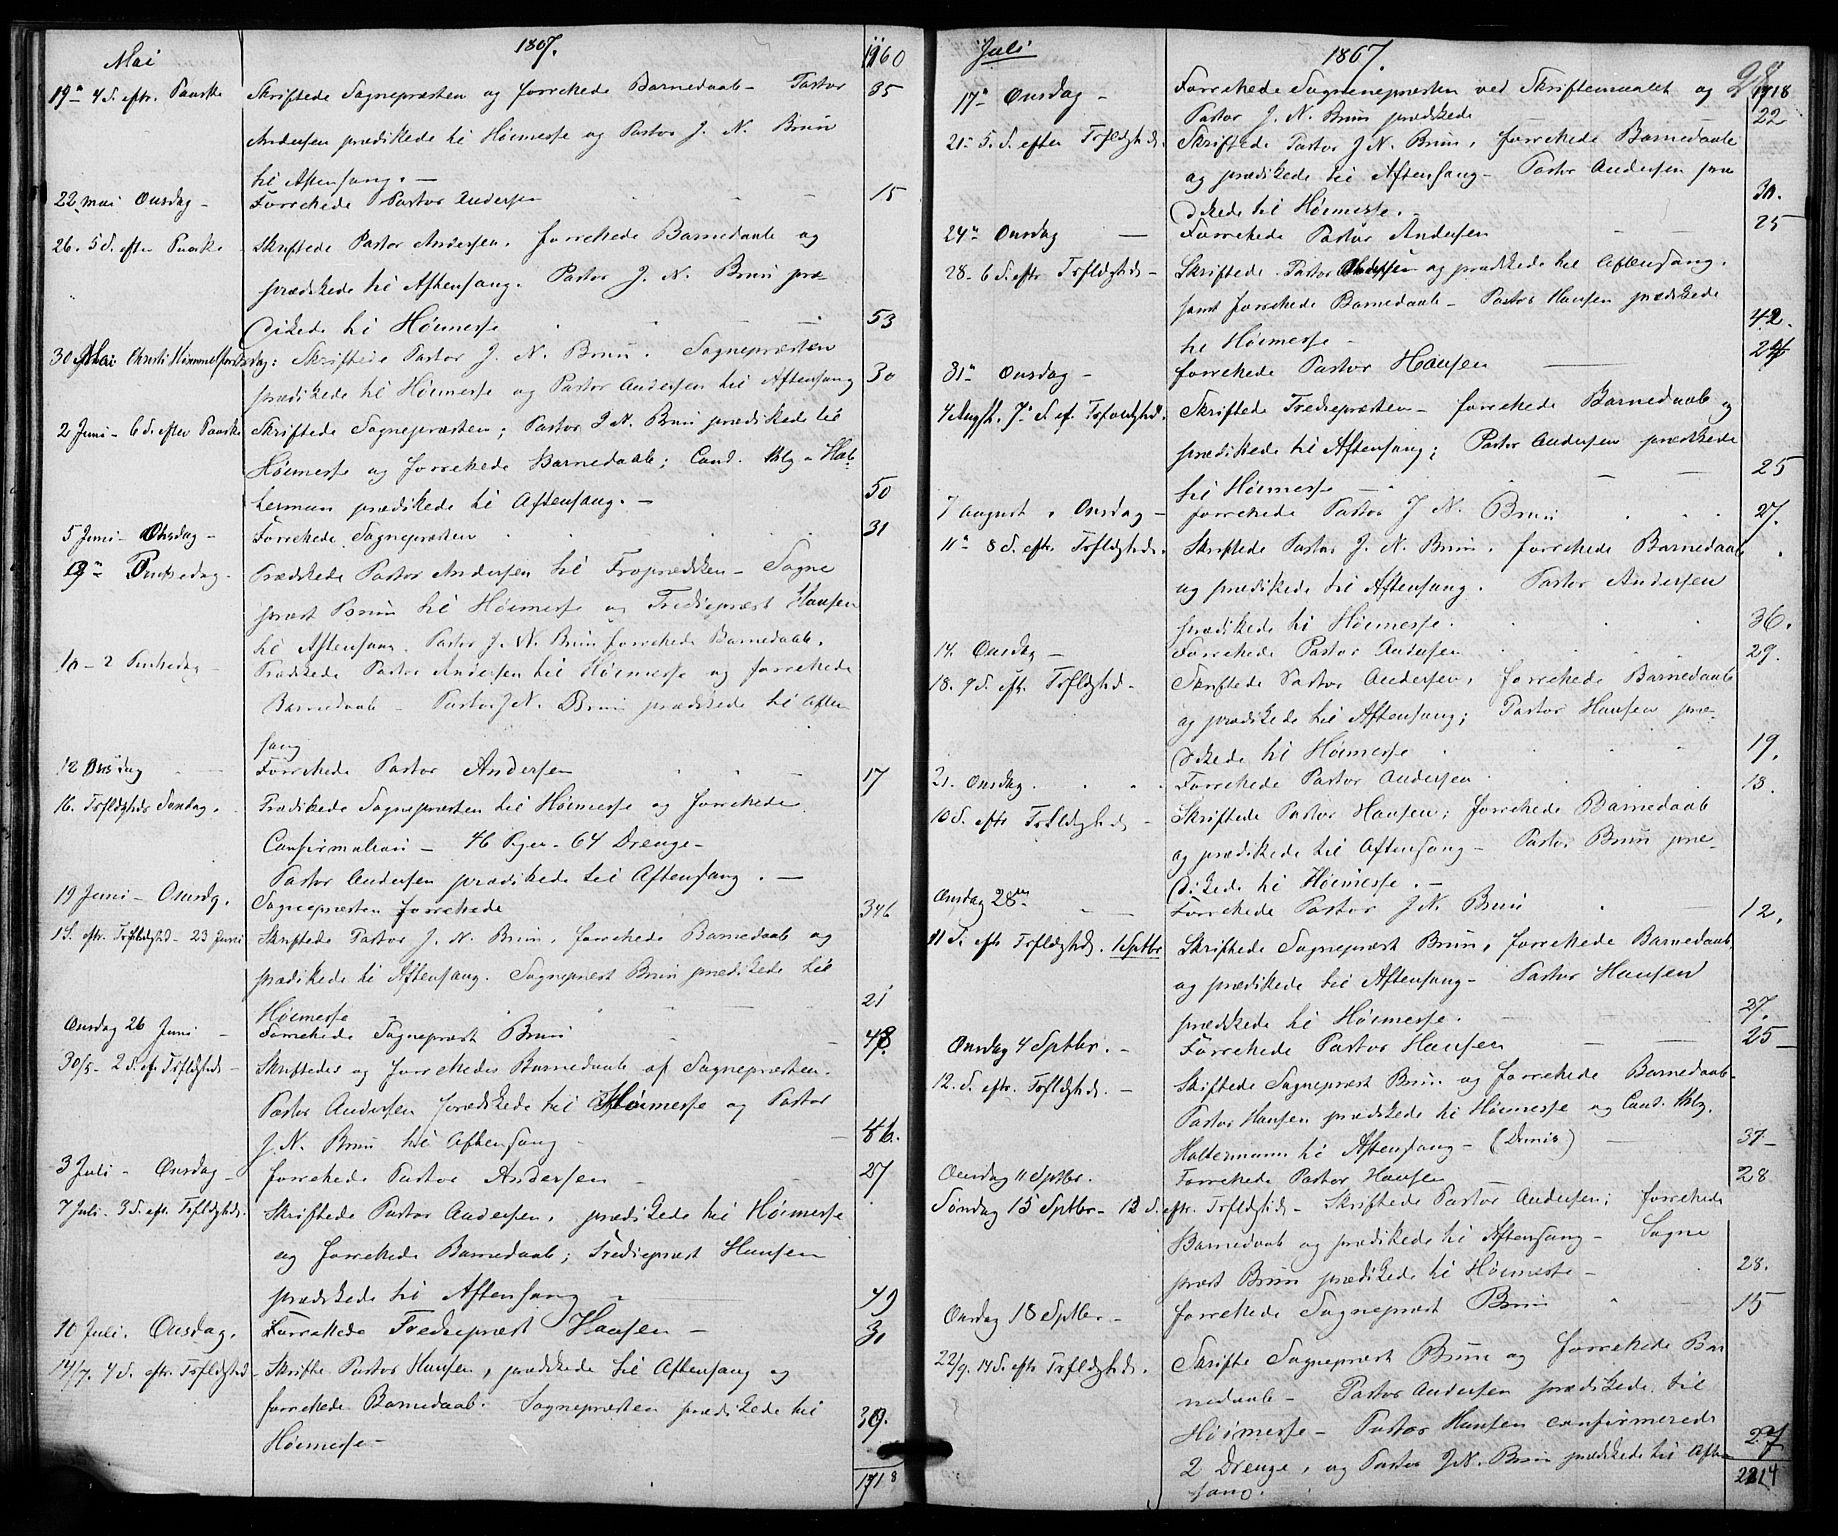 Mai 1867. 1160
19de 4 S. eftr. Paaske Skriftede Sognepræsten og forrettede Barnedaab – Pastor 35
Andersen prædikede til Høimesse og Pastor J. N. Brun
til Aftensang. –
22 mai Onsdag – Forrettede Pastor Andersen 15
26. 5 S. efter Paaske Skriftede Pastor Andersen. forrettede Barnedaab og
prædikede til Aftensang. Pastor J. N. Brun præ-
dikede til Høimesse 53
30 Mai Christi Himmelfartsdag: Skriftede Pastor J. N. Brun. Sognepræsten
prædikede til Høimesse og Pastor Andersen til Aftensang 30
2 Juni – 6 S. efter Paaske Skriftede Sognepræsten; Pastor J N. Brun prædikede til
Høimesse og forrettede Barnedaab; Cand. thlg. Hal-
terman prædikede til Aftensang. – 50
5 Juni – Onsdag – Forrettede Sognepræsten 31
9de Pintsedag – Prædikede Pastor Andersen til Froprædken – Sogne
præst Brun til Høimesse og Trediepræst Hansen
til Aftensang. Pastor J. N. Brun forrettede Barnedaab.
10 – 2 Pintsedag – Prædikede Pastor Andersen til Høimesse og forrettede
Barnedaab – Pastor J N. Brun prædikede til Aften
sang
12 Onsdag Forrettede Pastor Andersen 17
16. Trefldgheds Søndag. Prædikede Sognepræsten til Høimesse og forrettede
Confirmation – 46 Piger – 64 Drenge –
Pastor Andersen prædikede til Aftensang. –
19 Juni – Onsdg. Sognepræsten forrettede 346
1 S. eftr. Trefldghed – 23 Juni Skriftede Pastor J. N. Brun. forrettede Barnedaab og
prædikede til Aftensang. Sognepræst Brun prædikede til
Høimesse 21
Onsdag 26 Juni – Forrettede Sognepræst Brun 48
30/5 – 2 S. ef. Trefldgheds – Skriftedes og forrettedes Barnedaab af Sognepræsten.
Pastor Andersen prædikede til Høimesse og Pastor
J. N. Brun til Aftensang – 46.
3 Juli – Onsdag – forrettede Pastor Andersen 27
7 Juli. 3 S. eftr. Trefldgheds. Skriftede Pastor Andersen. prædikede til Høimesse
og forrettede Barnedaab; Trediepræst Hansen
prædikede til Aftensang 49
10 Juli. Onsdag. Forrettede Trediepræst Hansen – 31
14/7. 4 S. eftr. Trefldghed – Skrifte Pastor Hansen, prædikede til Aftensang og
forrettede Barnedaab. Sognepræsten prædikede til
Høimesse – 39.
1718
Juli 1867. 98
1718
17de Onsdag – Forrettede Sognepræsten ved Skriftemaalet og
Pastor J. N. Brun prædikede 22
21– 5. S. efter Trefldghds. Skriftede Pastor J N. Brun, forrettede Barnedaab
og prædikede til Aftensang – Pastor Andersen præ
dikede til Høimesse. 30.
24de Onsdag – Forrettede Pastor Andersen 25
28– 6 S. eftr Trefldgheds – Skriftede Pastor Andersen og prædikede til Aftensang.
samt forrettede Barnedaab – Pastor Hansen prædikede
til Høimesse – 42.
31te Onsdag – forrettede Pastor Hansen 24
4 Augst. 7de S. ef. Trefoldghed. Skriftede Trediepræsten – forrettede Barnedaab og
prædikede til Aftensang; Pastor Andersen prædikede
til Høimesse – 25
7 august. Onsdag – forrettede Pastor J. N. Brun 27.
11te 8 S. eftr. Trefldgheds. Skriftede Pastor J. N. Brun. forrettede Barnedaab
og prædikede til Aftensang. Pastor Andersen
prædikede til Høimesse. 36.
14. Onsdag – Forrettede Pastor Andersen 29.
18. 9 S. eft. Trefldghed – Skriftede Pastor Andersen, forrettede Barnedaab
og prædikede til Aftensang; Pastor Hansen præ-
dikede til Høimesse 19.
21. Onsdag. Forrettede Pastor Andersen 13.
10 S. eftr Trefldgheds – Skriftede Pastor Hansen; forrettede Barnedaab
og prædikede til Aftensang – Pastor Brun præ-
dikede til Høimesse. –
Onsdag 28de – Forrettede Pastor J N. Brun 12.
11 S. eftr Trefldgheds. 1 Septbr Skriftede Sognepræst Brun, forrettede Barnedaab
og prædikede til Aftensang – Pastor Hansen
prædikede til Høimesse. 27.
Onsdag 4 Septbr. – Forrettede Pastor Hansen 25 –
12. S. eftr. Trefldgheds. – Skiftede Sognepræst Brun og forrettede Barnedaab –
Pastor Hansen prædikede til Høimesse og Cand. thlg.
Haltermann til Aftensang – (Dimis) 37–
Onsdag 11 Septbr. Forrettede Pastor Hansen 28
Søndag 15 Septbr – 13 S. eftr. Trefldgheds – Skriftede Pastor Andersen; forrettede
Barnedaab og prædikede til Aftensang – Sogne
præst Brun prædikede til Høimesse – 28.
Onsdag 18 Septbr – forrettede Sognepræst Brun 15
22/9. 14 S. eftr Trefldgheds. Skrifte Sognepræst Brun og forrettede Bar
nedaab – Pastor Andersen prædikede til
Høimesse – Pastor Hansen confirmerede
2 Drenge, og Pastor J N. Brun prædikede til Aften 27
sang. 2214